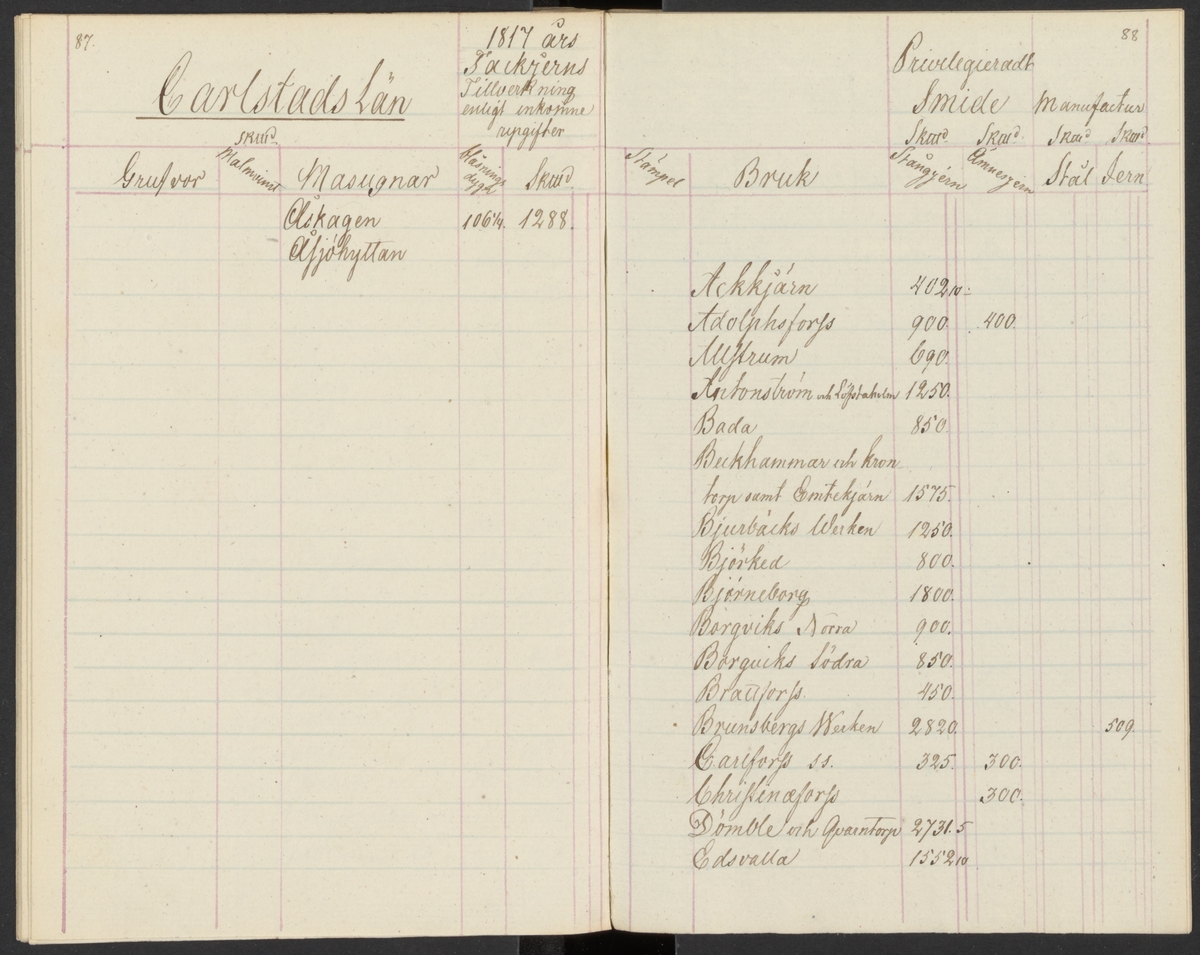 87.
Carlstads Län
1817 års
Tackjerns
Tillverkning
enligt inkomne
upgifter
Skud.
Grufvor Malmvinst Masugnar Blåsnings dygn Skud.
Åskagen 106 1/4. 1288.
Åsjöhyttan
88
Privilegieradt
Smide Manufactur
Skud. Skud. Skud Skud.
Stämpel Bruk Stångjern Ämnesjern Stål Jern
Ackkjärn 402 10
Adolphsforss 900. 400.
Allstrum 690.
Antonström och Löfstaholm 1250.
Bada 850.
Beckhammar och Kron
torp samt Emtekjärn 1575.
Bjurbäcks Werken 1250.
Björked 800.
Björneborg 1800.
Borgviks Norra 900.
Borgviks Södra 850.
Brattforss 450.
Brunsbergs Werken 2820. 509.
Carlforss ss. 325. 300.
Christinæforss 300.
Dömble och Qvarntorp 2731. 5
Edsvalla 1552 10